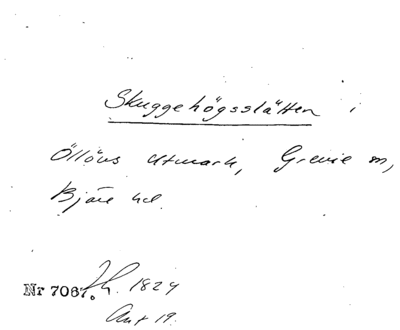 Skuggehögsslätten i
Öllövs utmark, Grevie sn,
Bjäre hd.
Nr 7067. Jh. 1824
Akt 19.